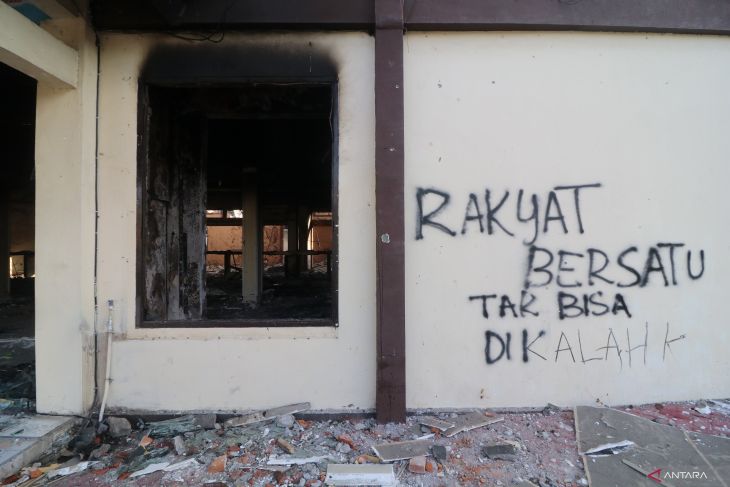 RAKYAT
BERSATU
TAK BISA
DIKALAHK
ANTARA